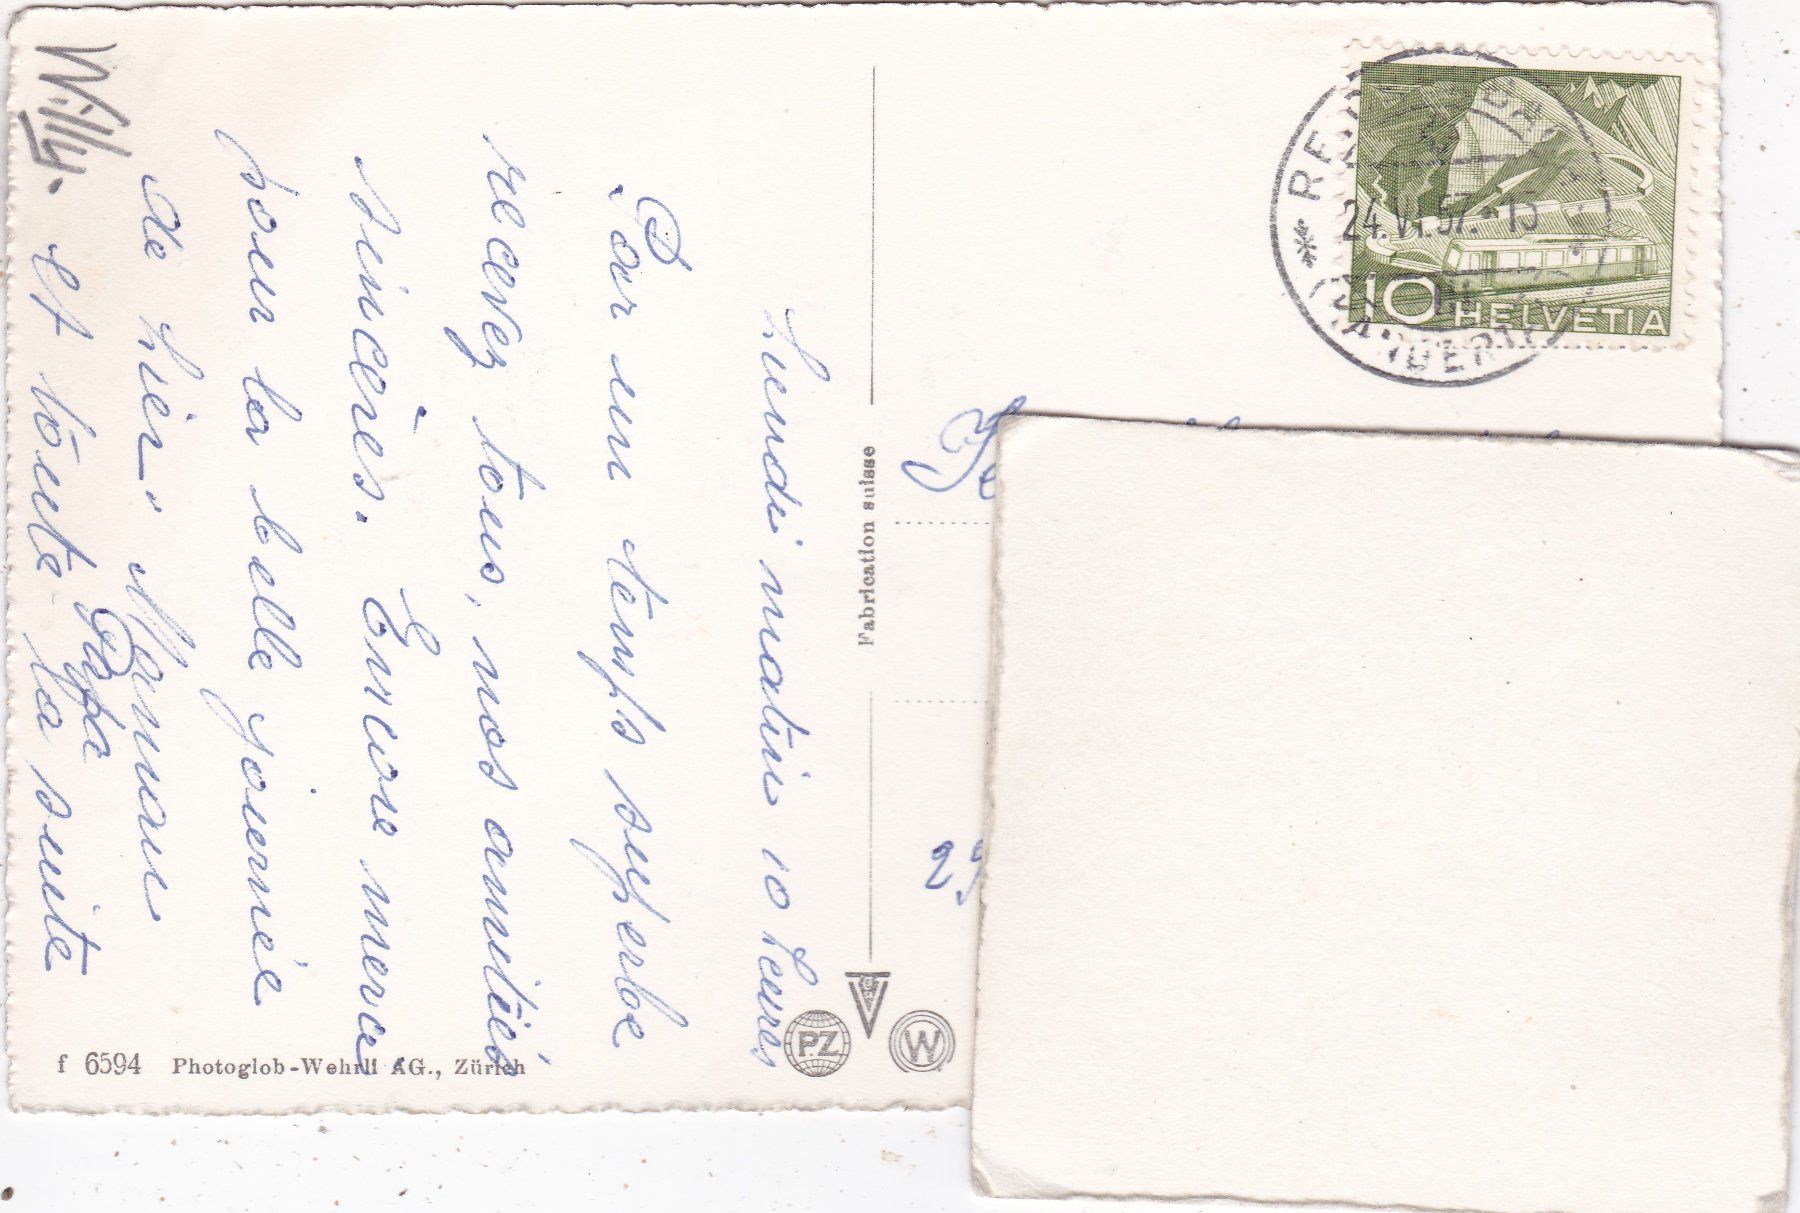 Lundi matin 10 heures
Par un temps superbe
recevez tous, nos amitiés
sincères. Encore merci
pour la belle journée
de hier. Maman
Papa
et toute la suite
Willy.
Fabrication suisse
f 6594 Photoglob-Wehrli AG., Zürich
PZ
W
24.VI.57.-15
10 HELVETIA